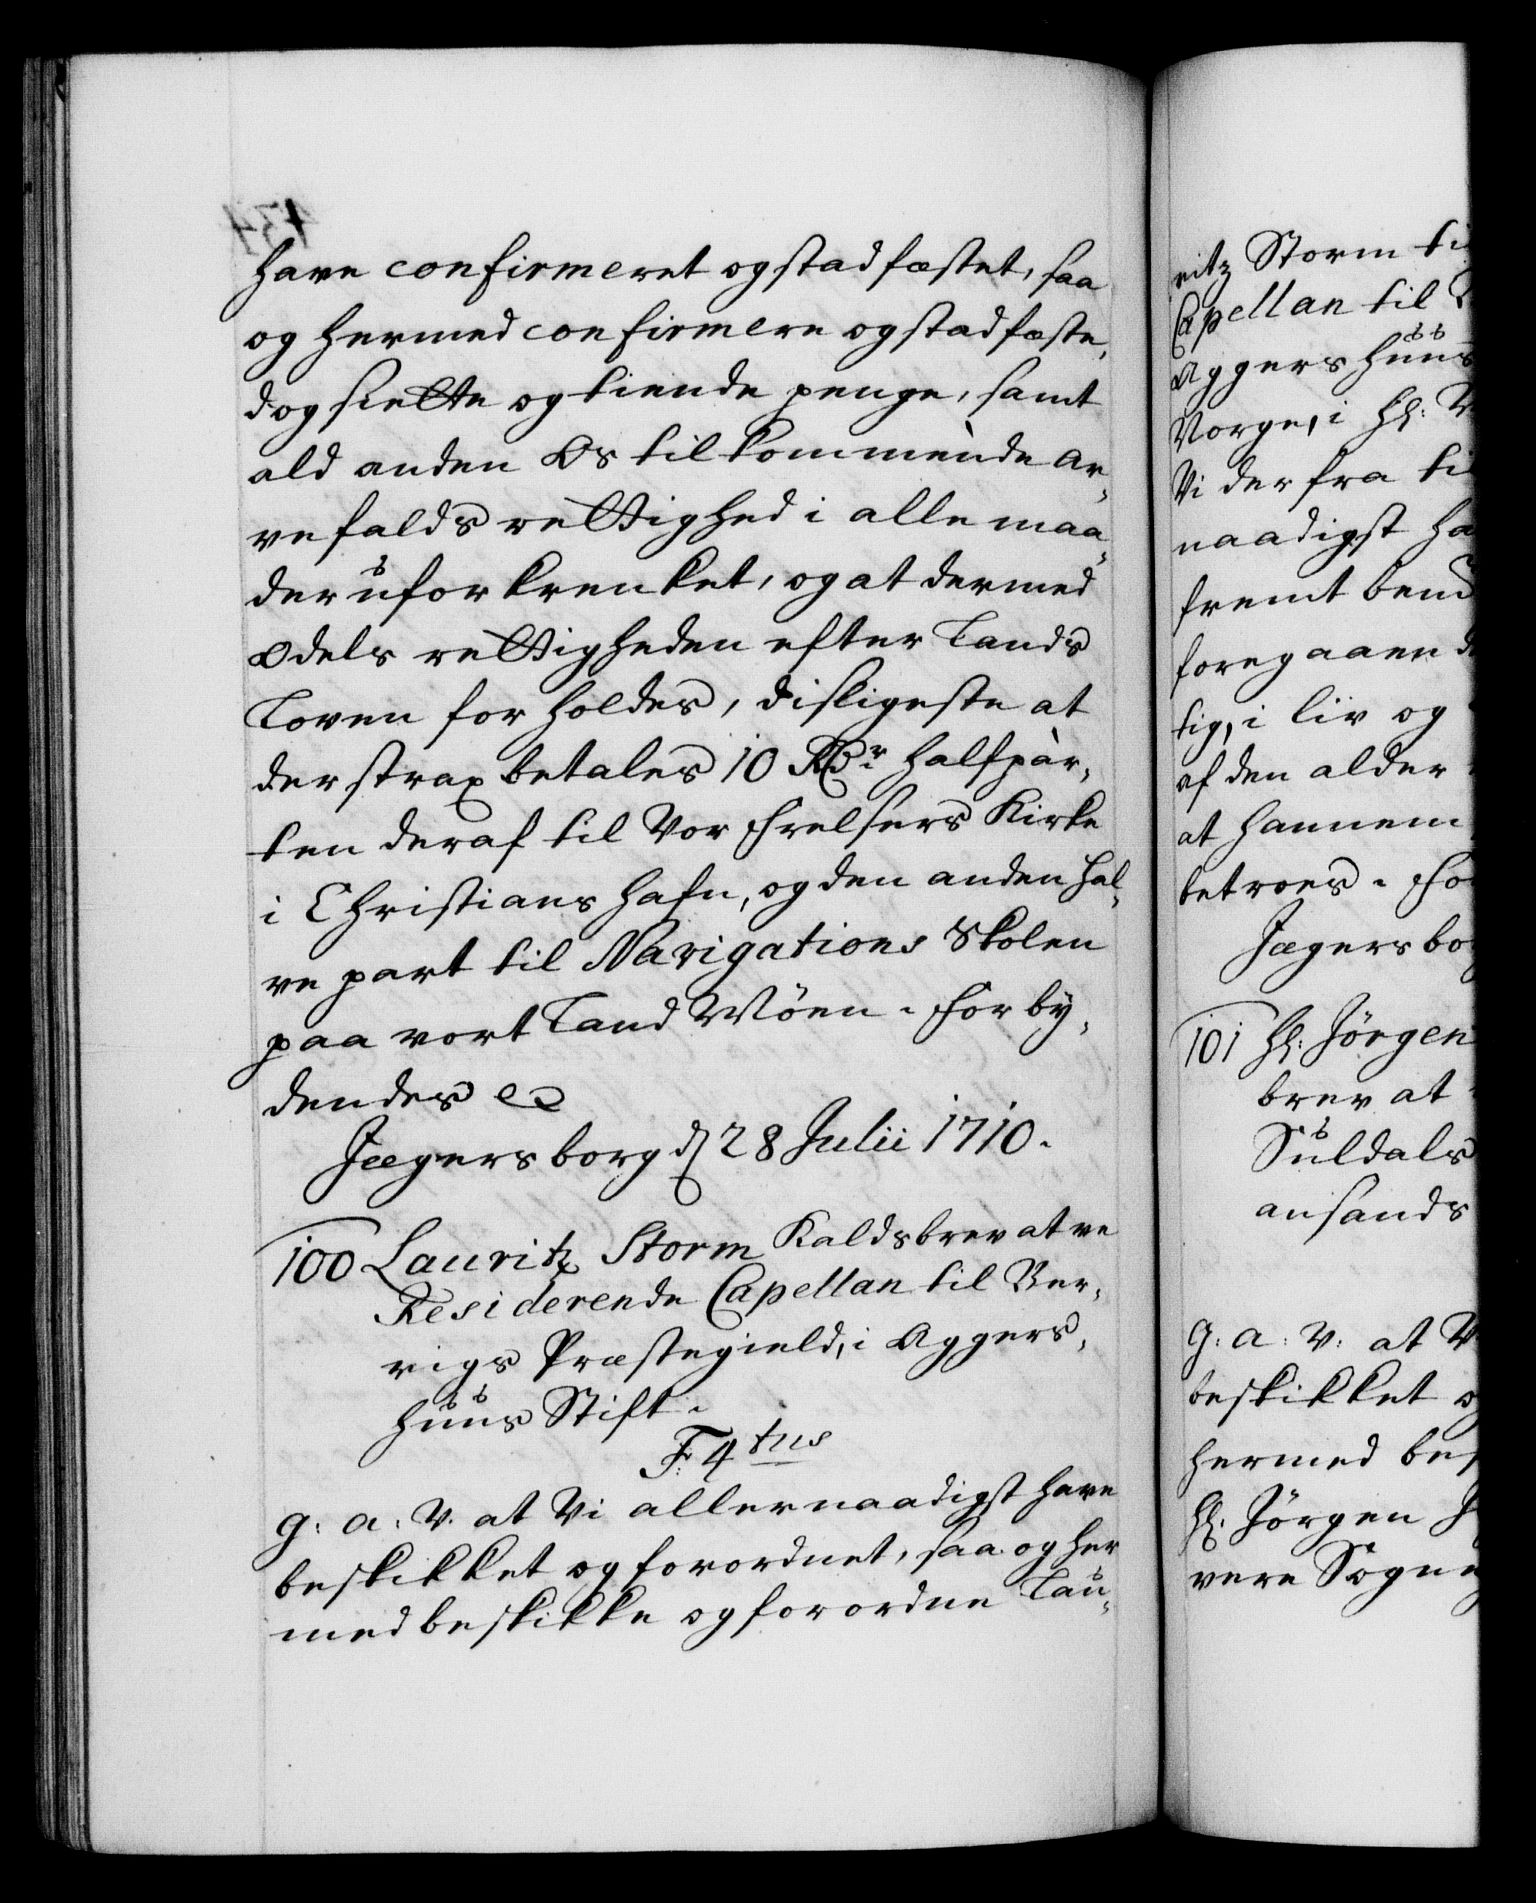 have confirmeret og stadfæstet, saa
og hermed confirmere og stadfæste,
dog siette og tiende penge, samt
ald anden Os tilkommende ar-
vefalds rettighed i alle maa-
der uforkrenket, og at dermed
Odels rettigheden efter Lands
Loven forholdes, disligeste at
der strax betales 10 Rdr halfpar-
ten deraf til Vor Frelsers Kirke
i Christianshafn, og den anden hal-
ve part til Navigations Skolen
paa vort Land Møen. Forby-
dendes
Jægersborg d 28 Julii 1710.
100 Lauritz Storm Kaldsbrev at være
Residerende Capellan til
rigs Præstegield, i Aggers-
huus Stift.
F: 4tus
G: A: V. at Vi allernaadigst have
beskikket og forordnet, saa og her
med beskikke og forordne Lau-
ritz Storm ti
Capellan til
Aggershuus
Norge, i Hr:
Vi der fra til
naadigst ha
fremt bem
foregaaen
tig, i liv og
af den alder
at hannem
betroes. For
Jægersbo
101 Hr: Jørgen
brev at
Suldals
ansands
G: A: V: at V
beskikket o
hermed bes
Hr. Jørgen
være Sogne